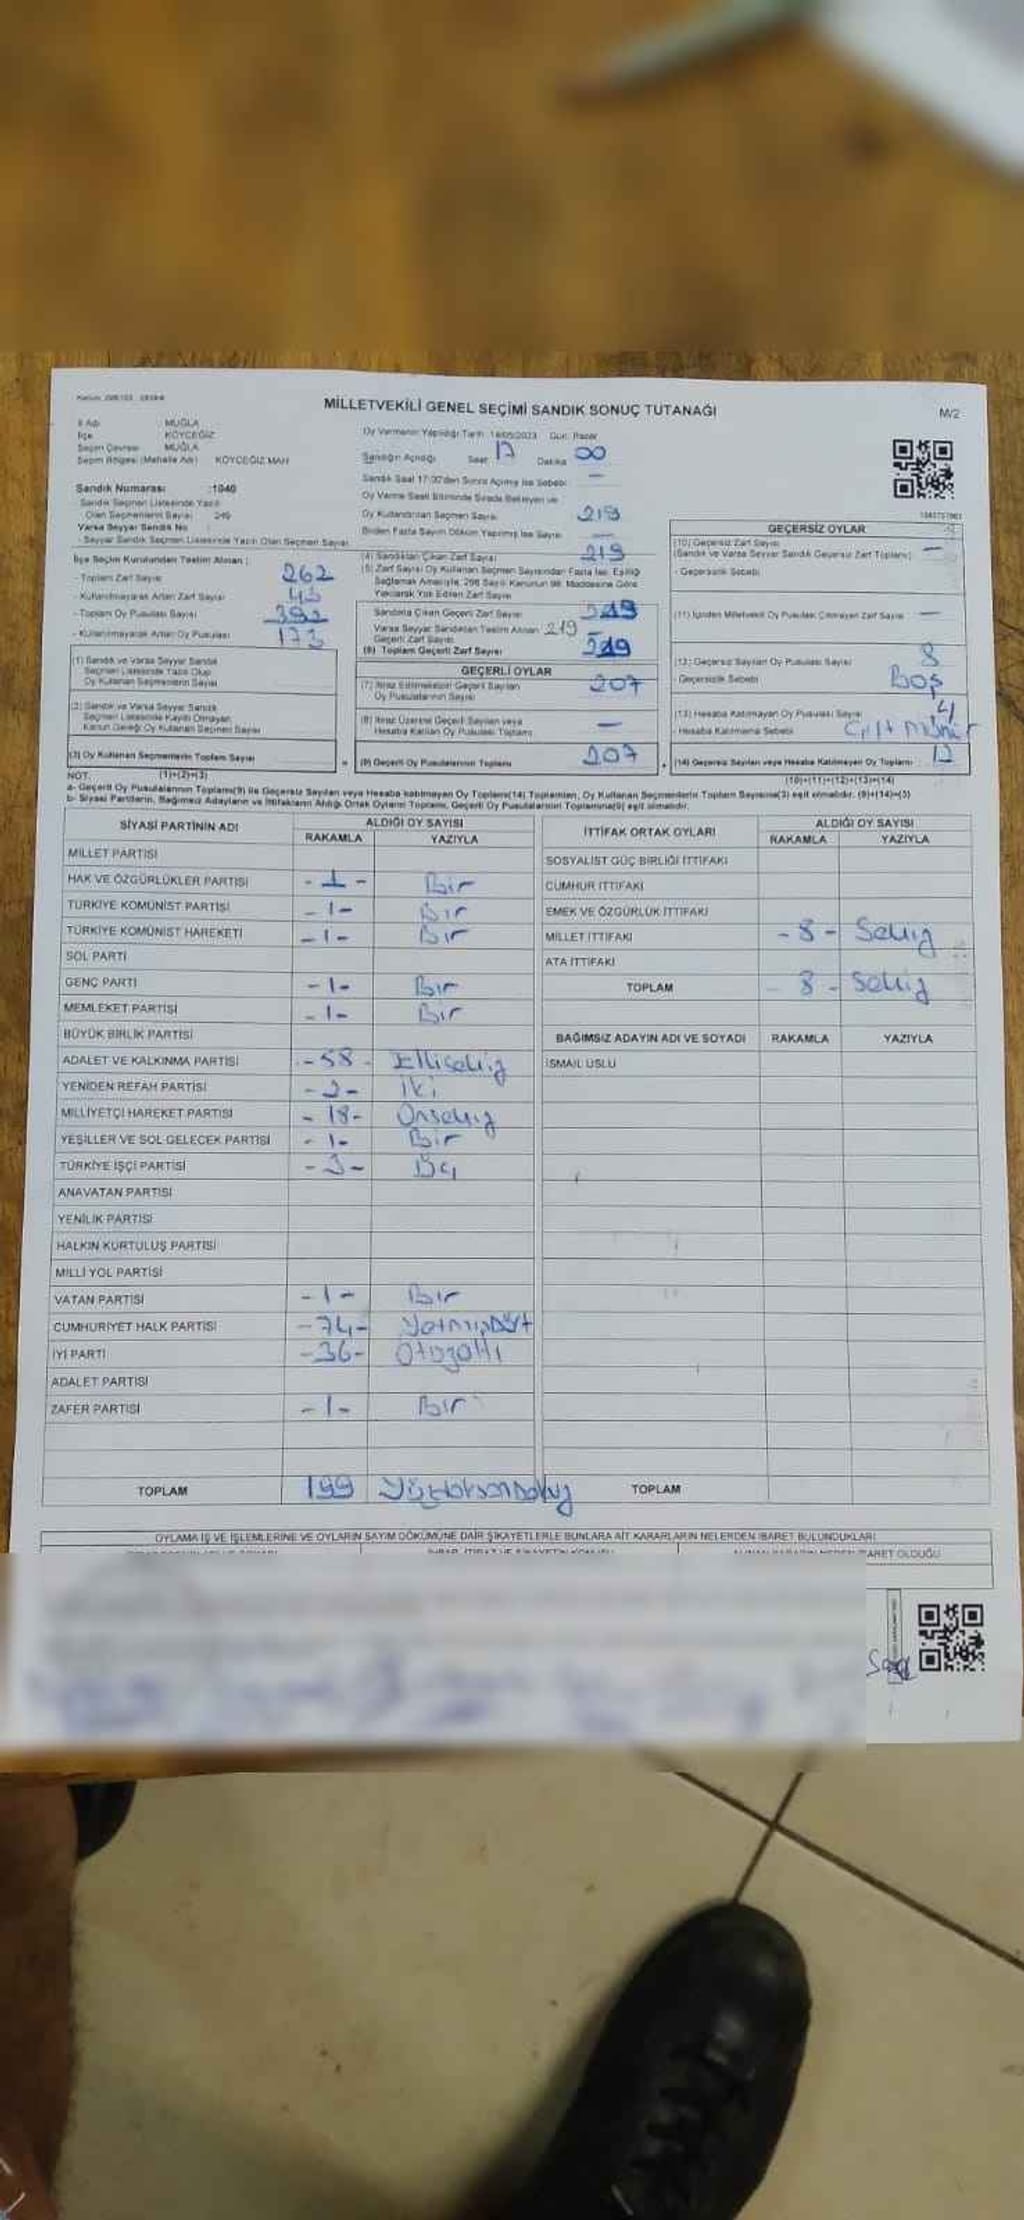 MİLLETVEKİLİ GENEL SEÇİMİ SANDIK SONUÇ TUTANAĞI
M/2
İl Adı : MUĞLA
İlçe : KÖYCEĞİZ
Seçim Çevresi : MUĞLA
Seçim Bölgesi (Mahalle Adı) : KÖYCEĞİZ MAH
Sandık Numarası :1040
Sandık Seçmen Listesinde Yazılı
Olan Seçmenlerin Sayısı : 249
Varsa Seyyar Sandık No :
- Seyyar Sandık Seçmen Listesinde Yazılı Olan Seçmen Sayısı
Oy Vermenin Yapıldığı Tarih : 14/05/2023 Gün: Pazar
Sandığın Açıldığı Saat 17 Dakika 00
Sandık Saat 17:00'den Sonra Açılmış İse Sebebi: —
Oy Verme Saati Bitiminde Sırada Bekleyen ve
Oy Kullandırılan Seçmen Sayısı 219
Birden Fazla Sayım Döküm Yapılmış İse Sayısı —
İlçe Seçim Kurulundan Teslim Alınan :
- Toplam Zarf Sayısı 262
- Kullanılmayarak Artan Zarf Sayısı 43
- Toplam Oy Pusulası Sayısı 392
- Kullanılmayarak Artan Oy Pusulası 173
(1) Sandık ve Varsa Seyyar Sandık
Seçmen Listesinde Yazılı Olup
Oy Kullanan Seçmenlerin Sayısı
(2) Sandık ve Varsa Seyyar Sandık
Seçmen Listesinde Kayıtlı Olmayan,
Kanun Gereği Oy Kullanan Seçmen Sayısı
(3) Oy Kullanan Seçmenlerin Toplam Sayısı
(4) Sandıktan Çıkan Zarf Sayısı 219
(5) Zarf Sayısı Oy Kullanan Seçmen Sayısından Fazla İse, Eşitliği
Sağlamak Amacıyla, 298 Sayılı Kanunun 98. Maddesine Göre
Yakılarak Yok Edilen Zarf Sayısı
Sandıkta Çıkan Geçerli Zarf Sayısı 219
Varsa Seyyar Sandıktan Teslim Alınan 219
Geçerli Zarf Sayısı
(6) Toplam Geçerli Zarf Sayısı 219
GEÇERLİ OYLAR
(7) İtiraz Edilmeksizin Geçerli Sayılan 207
Oy Pusulalarının Sayısı
(8) İtiraz Üzerine Geçerli Sayılan veya —
Hesaba Katılan Oy Pusulası Toplamı
(9) Geçerli Oy Pusulalarının Toplamı 207
GEÇERSİZ OYLAR
(10) Geçersiz Zarf Sayısı
(Sandık ve Varsa Seyyar Sandık Geçersiz Zarf Toplamı) —
- Geçersizlik Sebebi
(11) İçinden Milletvekili Oy Pusulası Çıkmayan Zarf Sayısı —
(12) Geçersiz Sayılan Oy Pusulası Sayısı 8
- Geçersizlik Sebebi Boş
(13) Hesaba Katılmayan Oy Pusulası Sayısı 4
- Hesaba Katılmama Sebebi Çift Mühür
(14) Geçersiz Sayılan veya Hesaba Katılmayan Oy Toplamı 12
NOT: (1)+(2)=(3) (10)+(11)+(12)+(13)=(14)
a- Geçerli Oy Pusulalarının Toplamı(9) ile Geçersiz Sayılan veya Hesaba katılmayan Oy Toplamı(14) Toplamları, Oy Kullanan Seçmenlerin Toplam Sayısına(3) eşit olmalıdır. (9)+(14)=(3)
b- Siyasi Partilerin, Bağımsız Adayların ve İttifakların Aldığı Ortak Oyların Toplamı, Geçerli Oy Pusulalarının Toplamına(9) eşit olmalıdır.
SİYASİ PARTİNİN ADI ALDIĞI OY SAYISI
RAKAMLA YAZIYLA
MİLLET PARTİSİ
HAK VE ÖZGÜRLÜKLER PARTİSİ - 1 - Bir
TÜRKİYE KOMÜNİST PARTİSİ - 1 - Bir
TÜRKİYE KOMÜNİST HAREKETİ - 1 - Bir
SOL PARTİ
GENÇ PARTİ - 1 - Bir
MEMLEKET PARTİSİ - 1 - Bir
BÜYÜK BİRLİK PARTİSİ
ADALET VE KALKINMA PARTİSİ - 58 - Ellisekiz
YENİDEN REFAH PARTİSİ - 2 - İki
MİLLİYETÇİ HAREKET PARTİSİ - 18 - Onsekiz
YEŞİLLER VE SOL GELECEK PARTİSİ - 1 - Bir
TÜRKİYE İŞÇİ PARTİSİ - 3 - Üç
ANAVATAN PARTİSİ
YENİLİK PARTİSİ
HALKIN KURTULUŞ PARTİSİ
MİLLİ YOL PARTİSİ
VATAN PARTİSİ - 1 - Bir
CUMHURİYET HALK PARTİSİ - 74 - Yetmişdört
İYİ PARTİ - 36 - Otuzaltı
ADALET PARTİSİ
ZAFER PARTİSİ - 1 - Bir
TOPLAM 199 Yüzdoksandokuz
İTTİFAK ORTAK OYLARI ALDIĞI OY SAYISI
RAKAMLA YAZIYLA
SOSYALİST GÜÇ BİRLİĞİ İTTİFAKI
CUMHUR İTTİFAKI
EMEK VE ÖZGÜRLÜK İTTİFAKI
MİLLET İTTİFAKI - 8 - Sekiz
ATA İTTİFAKI
TOPLAM - 8 - Sekiz
BAĞIMSIZ ADAYIN ADI VE SOYADI RAKAMLA YAZIYLA
İSMAİL USLU
TOPLAM
OYLAMA İŞ VE İŞLEMLERİNE VE OYLARIN SAYIM DÖKÜMÜNE DAİR ŞİKAYETLERLE BUNLARA AİT KARARLARIN NELERDEN İBARET BULUNDUKLARI